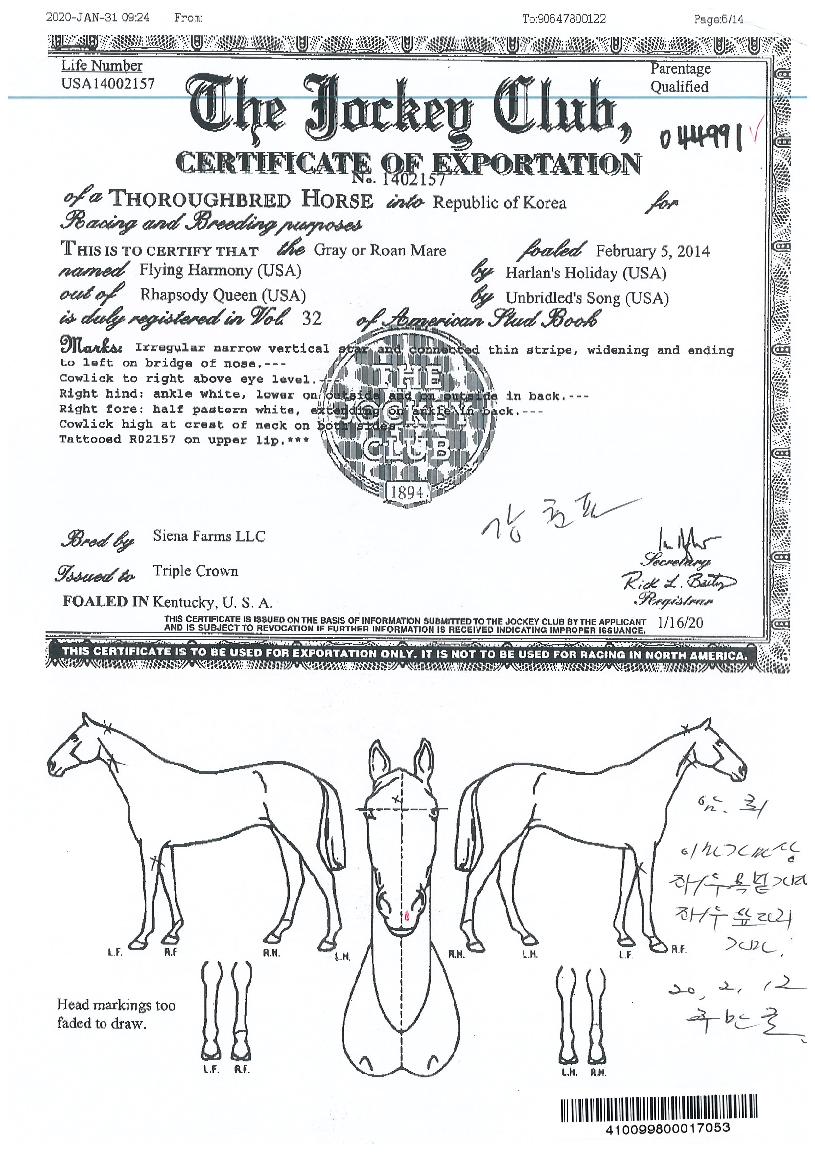 2020-JAN-31 09:24 From: To:90647800122 Page:6/14
Life Number
USA14002157
Parentage
Qualified
The Jockey Club,
044991
CERTIFICATE OF EXPORTATION
No. 1402157
of a THOROUGHBRED HORSE into Republic of Korea for
Racing and Breeding purposes
THIS IS TO CERTIFY THAT the Gray or Roan Mare foaled February 5, 2014
named Flying Harmony (USA) by Harlan's Holiday (USA)
out of Rhapsody Queen (USA) by Unbridled's Song (USA)
is duly registered in Vol. 32 of American Stud Book
Marks: Irregular narrow vertical star and connected thin stripe, widening and ending
to left on bridge of nose.---
Cowlick to right above eye level.---
Right hind: ankle white, lower on outside and on outside in back.---
Right fore: half pastern white, extending on ankle in back.---
Cowlick high at crest of neck on both sides.---
Tattooed R02157 on upper lip.***
THE
JOCKEY
CLUB
1894
Bred by Siena Farms LLC
Secretary
Issued to Triple Crown
Rick L. Bailey
Registrar
FOALED IN Kentucky, U. S. A.
THIS CERTIFICATE IS ISSUED ON THE BASIS OF INFORMATION SUBMITTED TO THE JOCKEY CLUB BY THE APPLICANT
AND IS SUBJECT TO REVOCATION IF FURTHER INFORMATION IS RECEIVED INDICATING IMPROPER ISSUANCE.
1/16/20
THIS CERTIFICATE IS TO BE USED FOR EXPORTATION ONLY. IT IS NOT TO BE USED FOR RACING IN NORTH AMERICA.
L.F. R.F. R.H. L.H. R.H. L.H. L.F. R.F.
20, 2, 12
Head markings too
faded to draw.
L.F. R.F. L.H. R.H.
410099800017053